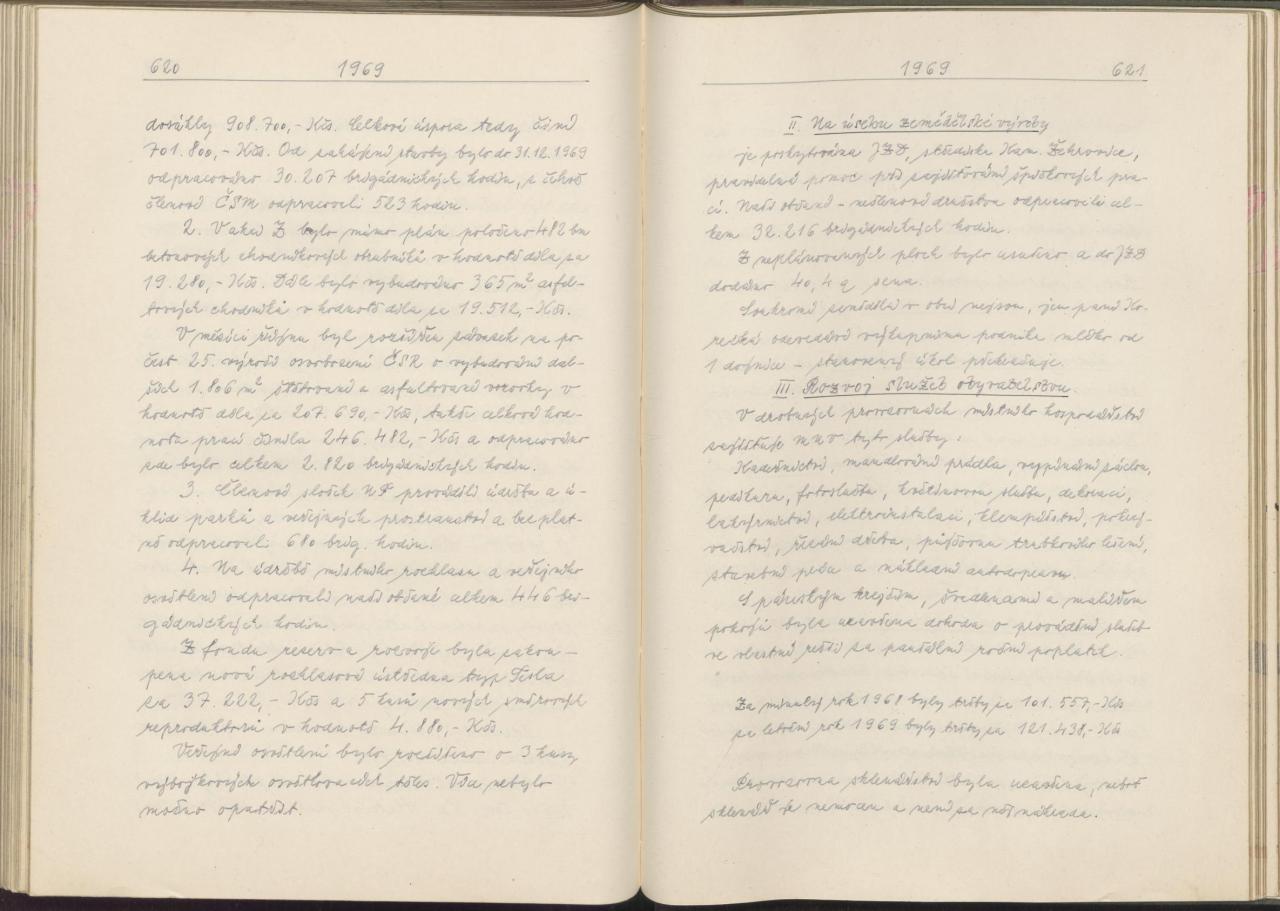 620 1969
dosáhly 908.700,- Kčs. Celková úspora tedy činí
701.800,- Kčs. Od zahájení stavby bylo do 31.12.1969
odpracováno 30.207 brigádnických hodin, z čehož
členové ČSM odpracovali 523 hodin.
2. V akci Z bylo mimo plán položeno 482 bm
betonových chodníkových obrubníků v hodnotě díla za
19.280,- Kčs. Dále bylo vybudováno 365 m² asfal-
tových chodníků v hodnotě díla za 19.512,- Kčs.
V měsíci říjnu byl rozšířen závazek na po-
čest 25. výročí osvobození ČSR o vybudování dal-
ších 1.806 m² štětované a asfaltované vozovky v
hodnotě díla za 207.690,- Kčs, takže celková hod-
nota prací činila 246.482,- Kčs a odpracováno
zde bylo celkem 2.820 brigádnických hodin.
3. Členové složek NF prováděli údržbu a ú-
klid parků a veřejných prostranství a bezplat-
ně odpracovali 680 brig. hodin.
4. Na údržbě místního rozhlasu a veřejného
osvětlení odpracovali naši občané celkem 446 bri-
gádnických hodin.
Z fondu reserv a rozvoje byla zakou-
pena nová rozhlasová ústředna typ Tesla
za 37.222,- Kčs a 5 kusů nových směrových
reproduktorů v hodnotě 4.880,- Kčs.
Veřejné osvětlení bylo rozšířeno o 3 kusy
výbojkových osvětlovacích těles. Více nebylo
možno opatřit.
1969 621
II. Na úseku zemědělské výroby
je poskytována JZD, středisko Kam. Žehrovice,
pravidelná pomoc při zajišťování špičkových pra-
cí. Naši občané - nečlenové družstva odpracovali cel-
kem 32.216 brigádnických hodin.
Z neplánovaných ploch bylo usušeno a do JZD
dodáno 40,4 q sena.
Soukromí zemědělci v obci nejsou, jen paní Ho-
recká odevzdává výkupnímu podniku mléko od
1 dojnice - stanovený úkol překračuje.
III. Rozvoj služeb obyvatelstvu.
V drobných provozovnách místního hospodářství
zajišťuje MNV tyto služby:
Kadeřnictví, mandlování prádla, vypínání záclon,
pedikuru, fotoslužbu, květinovou službu, dekoraci,
lakýrnictví, elektroinstalaci, klempířství, pokrý-
vačství, řezání dřeva, půjčovnu trubkového lešení,
stavební péči a nákladní autodopravu.
S pánským krejčím, švadlenami a malířem
pokojů byla uzavřena dohoda o provádění služeb
ve vlastní režii za paušální roční poplatek.
Za minulý rok 1968 byly tržby za 101.557,- Kčs
za letošní rok 1969 byly tržby za 121.438,- Kčs
Provozovna sklenářství byla uzavřena, neboť
sklenář je nemocen a není za něj náhrada.